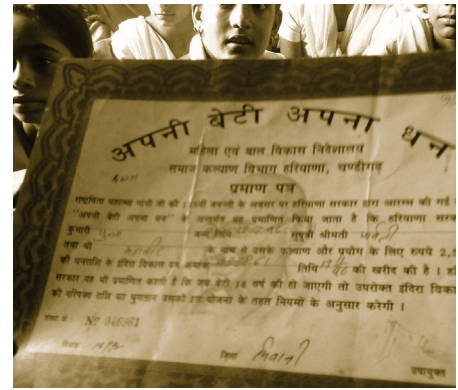 अपनी बेटी अपना धन
महिला एवं बाल विकास निदेशालय
समाज कल्याण विभाग हरियाणा, चण्डीगढ़
प्रमाण पत्र
राष्ट्रपिता महात्मा गांधी जी की 125वीं जयन्ती के अवसर पर हरियाणा सरकार द्वारा आरम्भ की गई
"अपनी बेटी अपना धन" के अन्तर्गत यह प्रमाणित किया जाता है कि हरियाणा
कुमारी जन्म तिथि सुपुत्री श्रीमती
तथा श्री के नाम से उसके कल्याण और प्रयोग के लिए रुपये
की धनराशि के इंदिरा विकास पत्र क्रमांक तिथि को खरीद की है ।
सरकार यह भी प्रमाणित करती है कि जब बेटी 18 वर्ष की हो जाएगी तो उपरोक्त इंदिरा
की परिपक्व राशि का भुगतान उसको इस योजना के तहत नियमों के अनुसार करेगी ।
संख्या के: Nº 046961
दिनांक जिला भिवानी
उपायुक्त